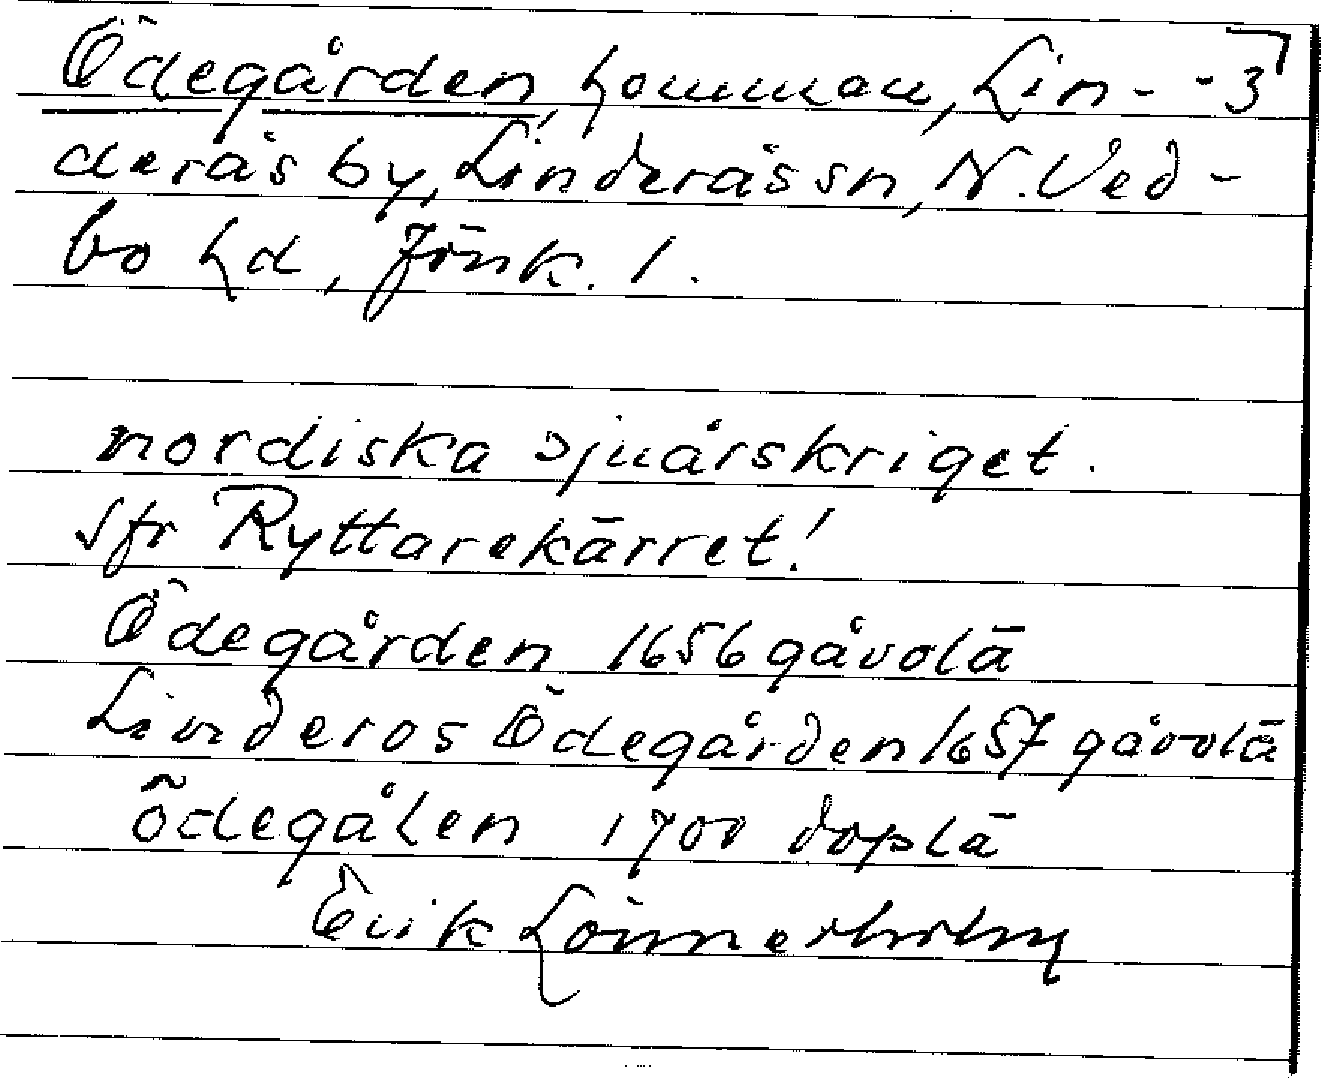 Ödegården, hemman, Lin- -3
derås by, Linderås sn, N. Ved-
bo hd, Jönk. l.
nordiska sjuårskriget.
Jfr Ryttarekärret!
Ödegården 1656 gåvolä
Linderos Ödegården 1657 gåvolä
ödegålen 1700 doplä
Erik Lönnerholm